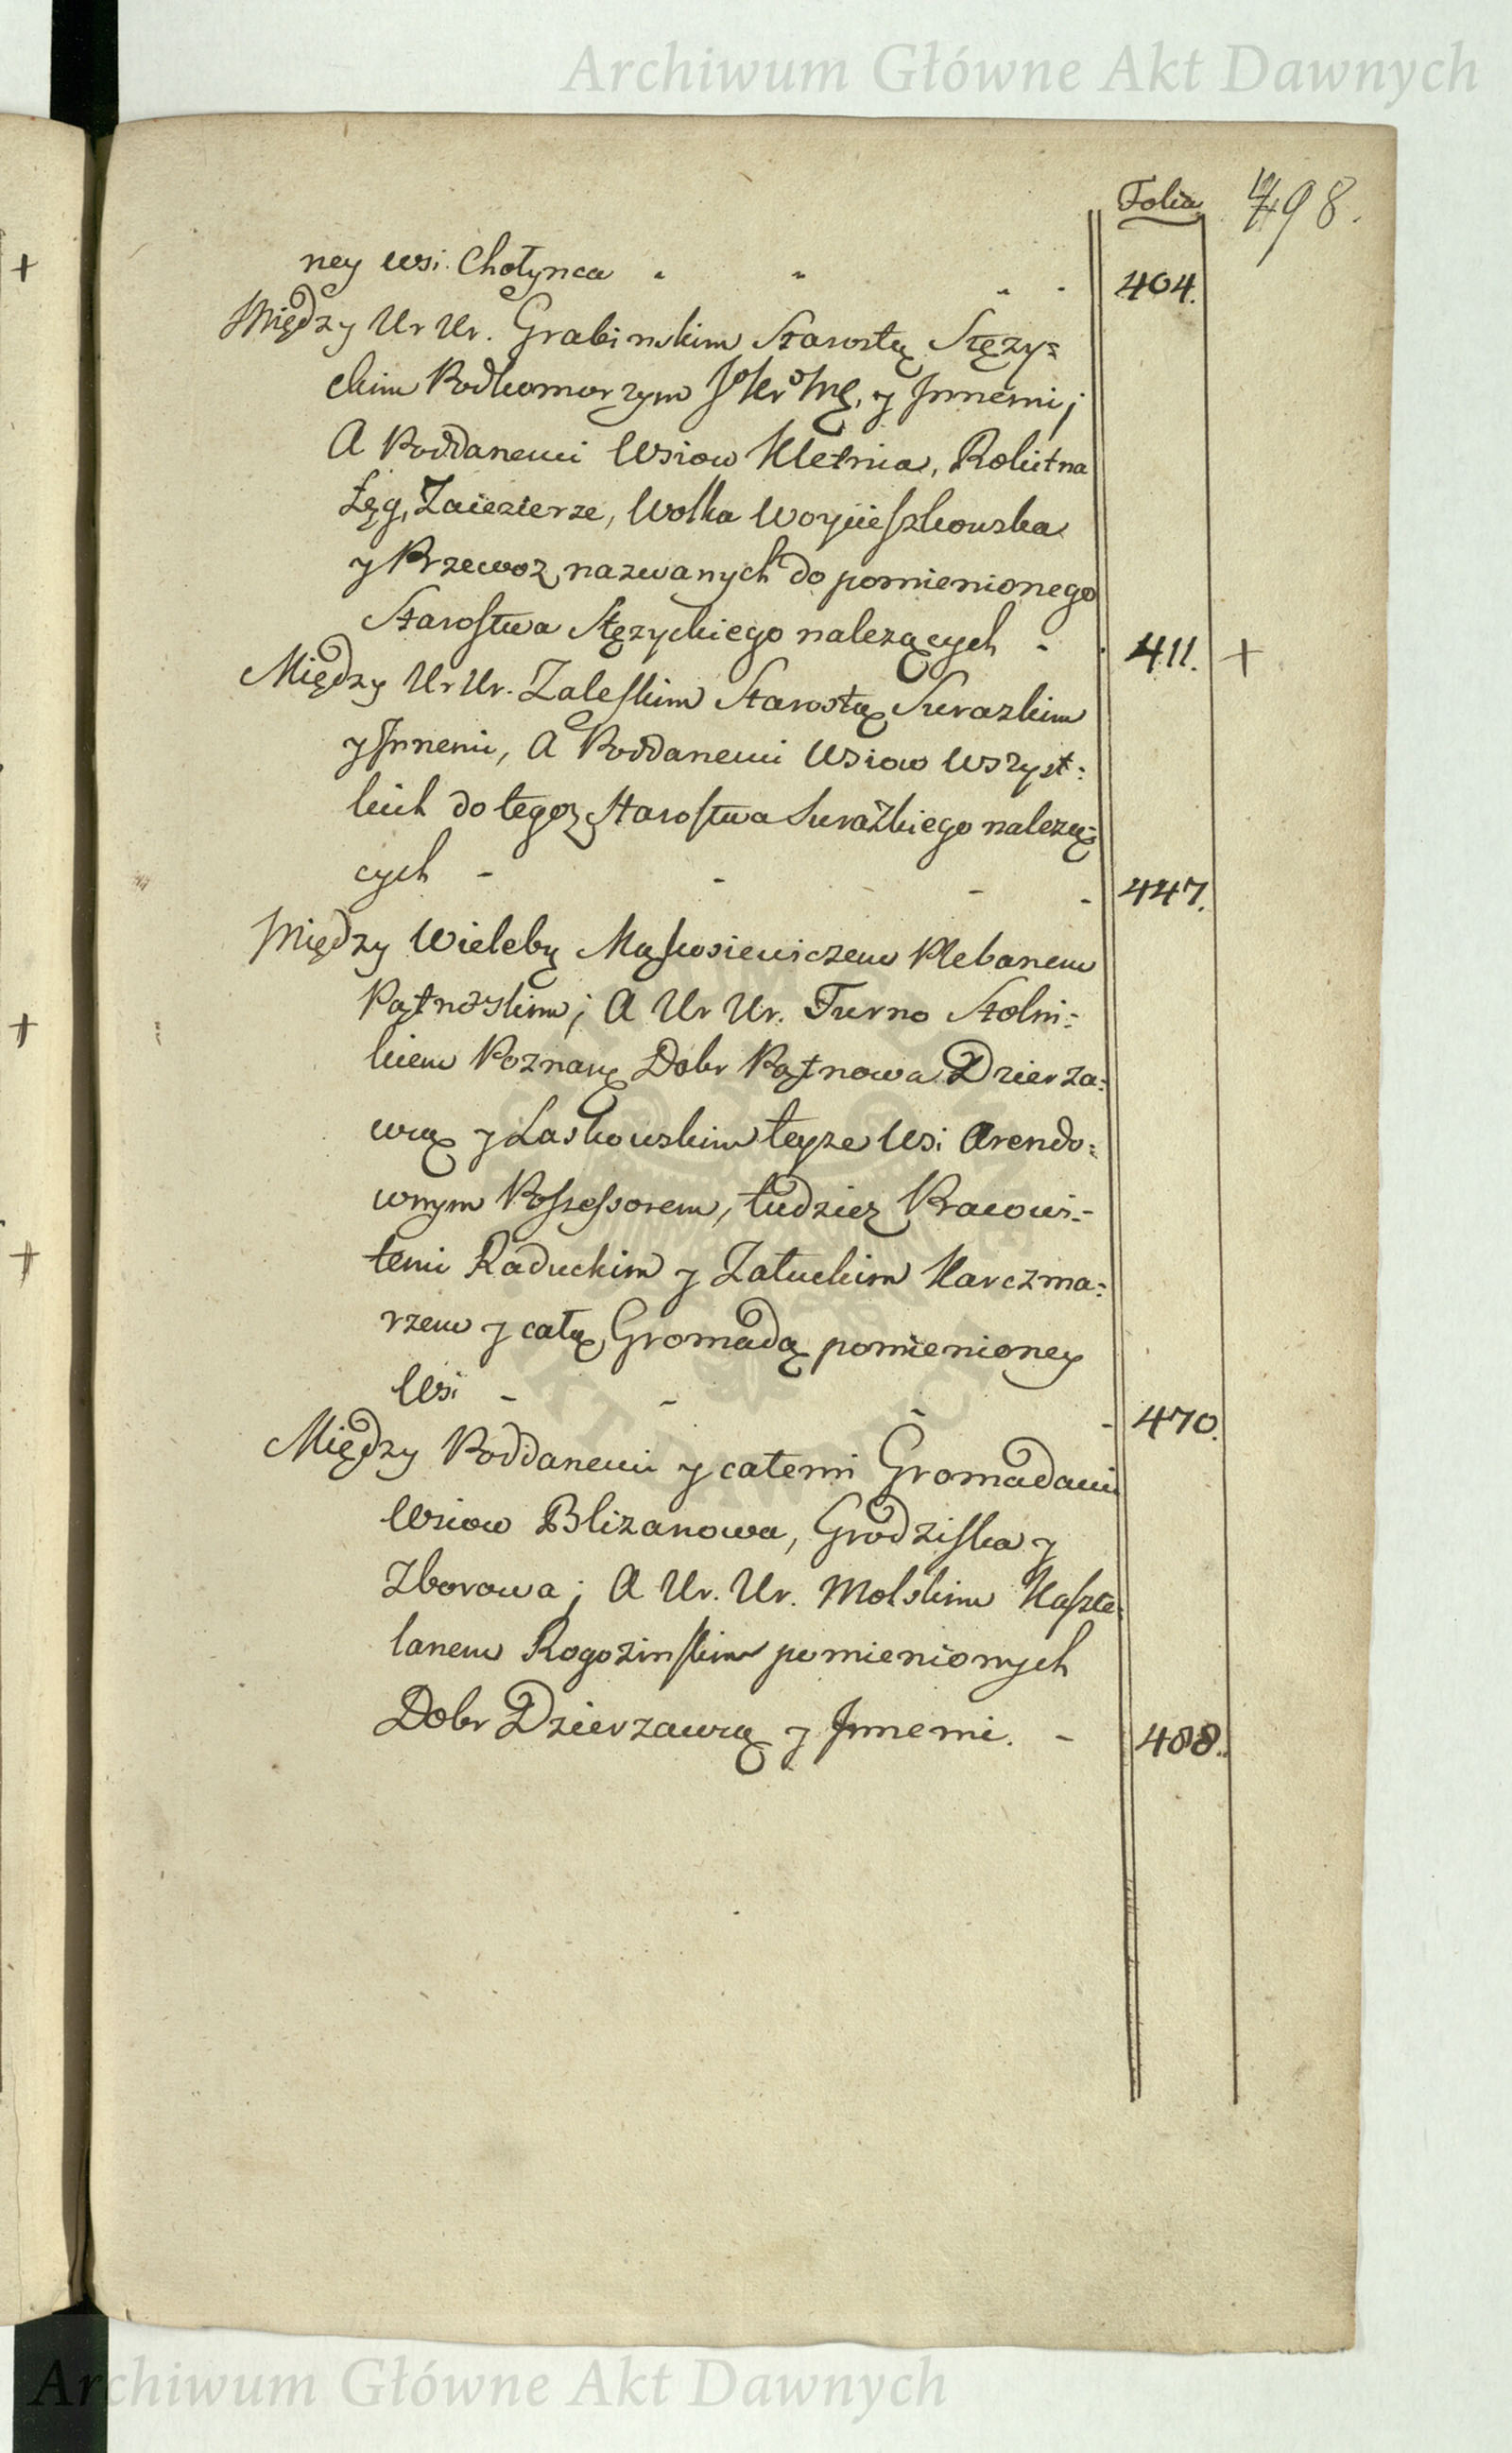 Archiwum Główne Akt Dawnych
Folia 498.
ney wsi Chołynca - - - - 404.
Między Ur Ur. Grabinskim Starostą Stęzy=
ckim Podkomorzym J K Mę, y Jnnemi;
A Poddanemi Wsiow Kletnia, Rokitna
Łęg, Zaiezierze, Wolka Woycieszkowska
y Przewoz nazwanych do pomienionego
Starostwa Stęzyckiego nalezących - - 411. +
Między Ur Ur. Zaleskim Starostą Surazkim
y Jnnemi, A Poddanemi Wsiow Wszyst=
kich do tegoz Starostwa Surazkiego nalezą=
cych - - - - 447.
Między Wieleby Plebanem
Pątnowskim; A Ur Ur. Turno Stolni=
kiem Poznanę Dobr Pątnowa Dzierza=
wcą y Laskowskim teyze Wsi Arendo=
wnym Possessorem, tudziez Pracowi=
temi Raduckim y Załuckim Karczma=
rzem y całą Gromadą pomienioney
Wsi - - - - 470.
Między Poddanemi y całemi Gromadami
Wsiow Blizanowa, Grodziska y
Zborowa; A Ur. Ur. Molskim Kaszte=
lanem Rogozinskim pomienionych
Dobr Dzierzawcą y Jnnemi. - 488.
Archiwum Główne Akt Dawnych